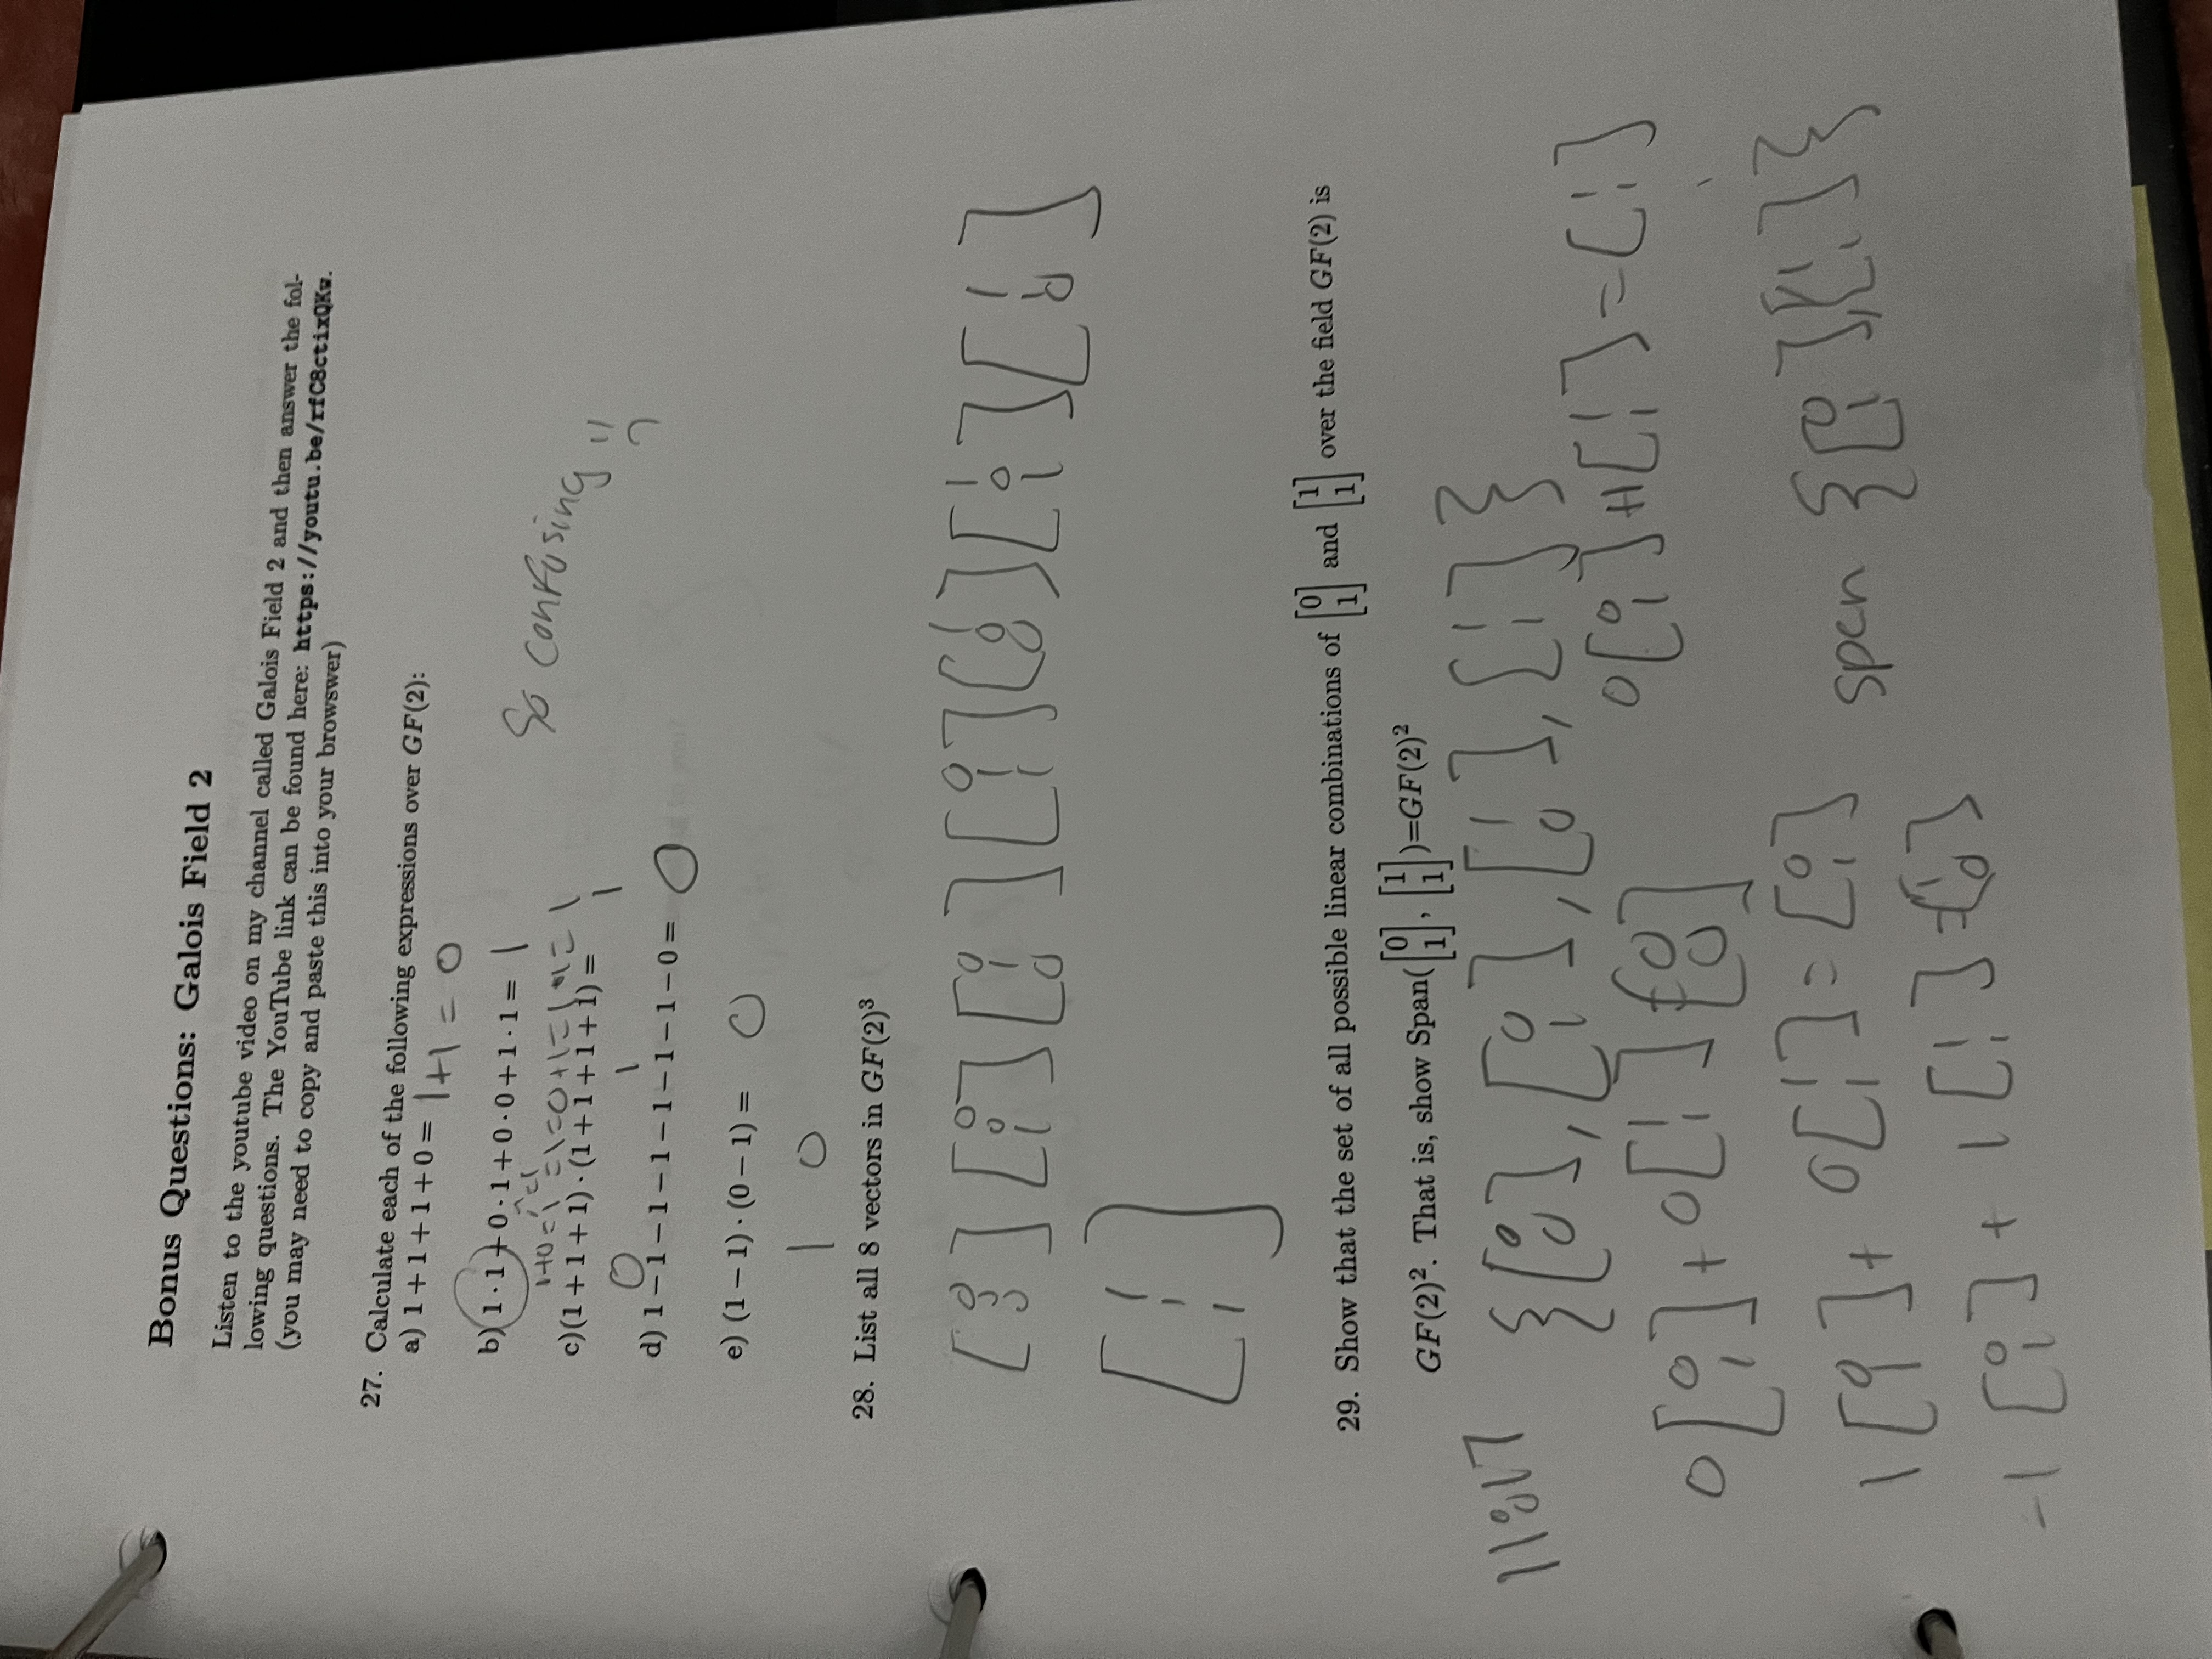 Bonus Questions: Galois Field 2
Listen to the youtube video on my channel called Galois Field 2 and then answer the fol-
lowing questions. The YouTube link can be found here: https://youtu.be/rfC8ctixQKw.
(you may need to copy and paste this into your browswer)
27. Calculate each of the following expressions over GF(2):
a) 1 + 1 + 1 + 0 = 1+1 = 0
b) 1 · 1 + 0 · 1 + 0 · 0 + 1 · 1 = 1
So confusing !!
?
1+0=1 =1=0+1=1 = 1
c)(1 + 1 + 1) · (1 + 1 + 1 + 1) = 1
0 1
d) 1 − 1 − 1 − 1 − 1 − 1 − 1 − 0 = 0
e) (1 − 1) · (0 − 1) = 0
1 0
28. List all 8 vectors in GF(2)³
[0 0 0] [0 0 1] [0 1 0] [0 1 1] [1 0 0] [1 0 1] [1 1 0]
[1 1 1]
29. Show that the set of all possible linear combinations of [0 1] and [1 1] over the field GF(2) is
GF(2)². That is, show Span([0 1], [1 1])=GF(2)²
11:17 {[0 0], [0 1], [1 0], [1 1]}
0[0 1] + 1[1 1] = [1 1]
0[0 1] + 0[1 1] = [0 0]
1[0 1] + 0[1 1] = [0 1]
span {[0 1], [1 1]}
-1[0 1] + 1[1 1] = [1 0]